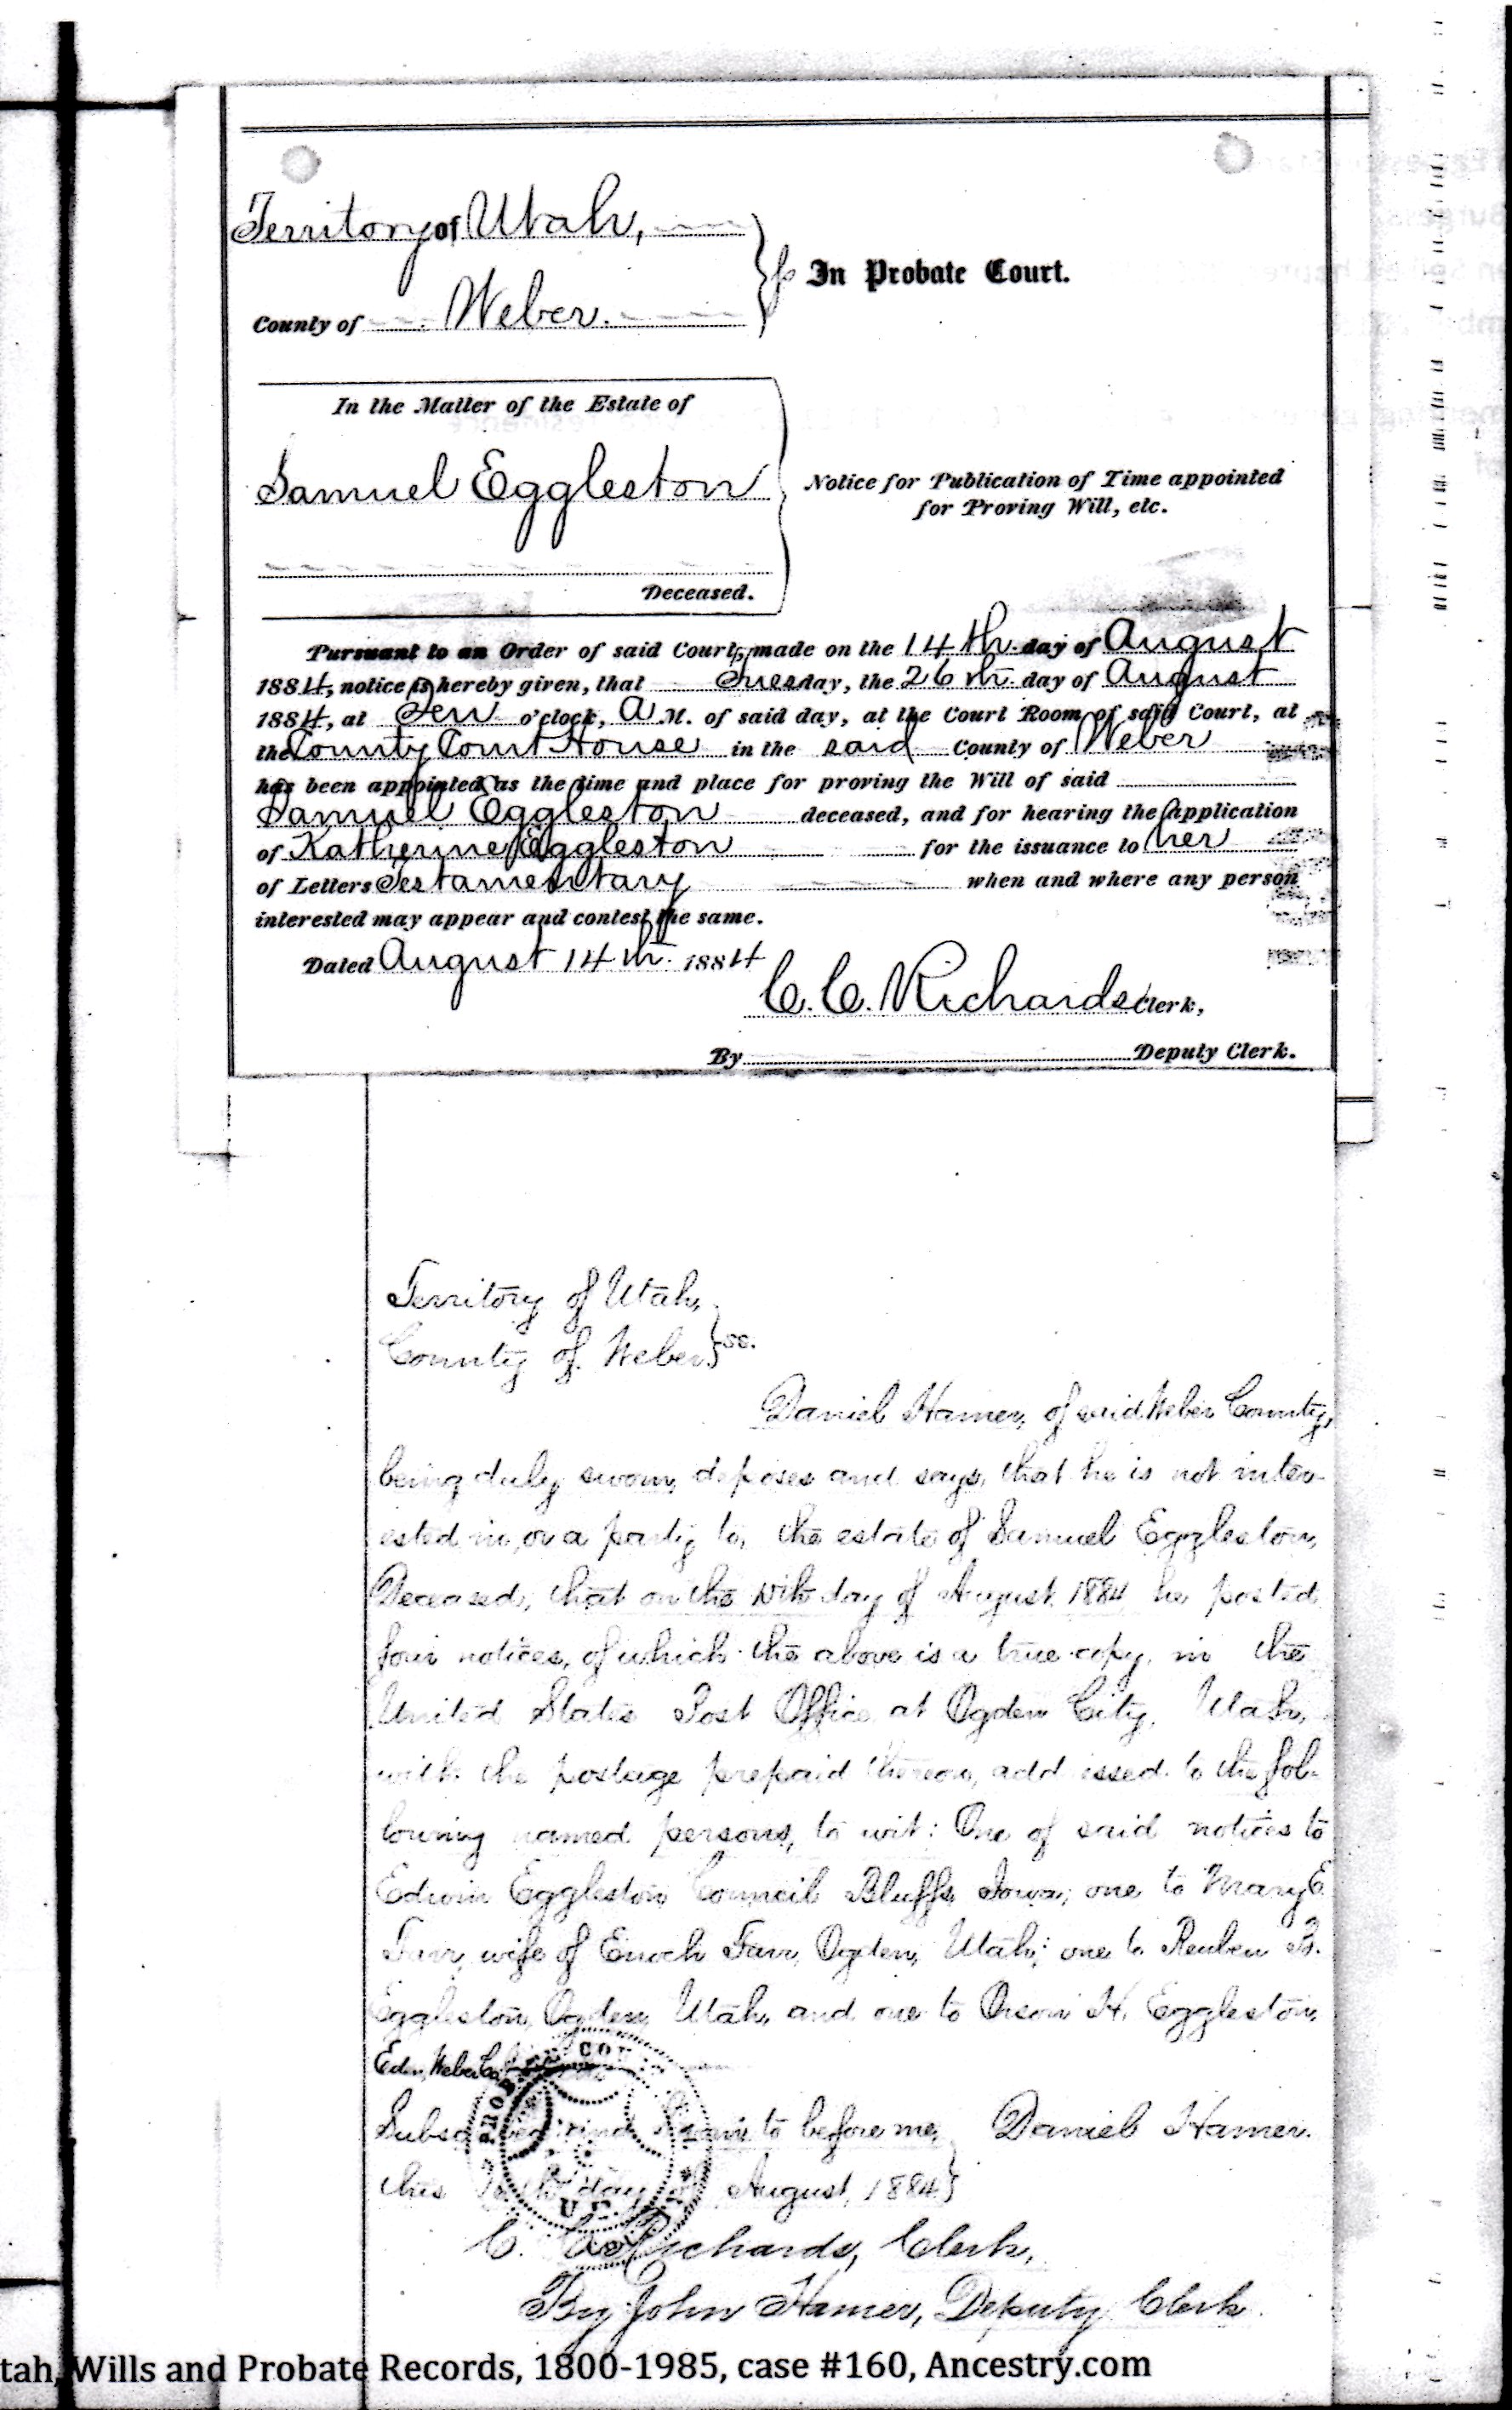 Territory of Utah,
County of Weber.
In Probate Court.
In the Matter of the Estate of
Samuel Eggleston
Deceased.
Notice for Publication of Time appointed
for Proving Will, etc.
Pursuant to an Order of said Court, made on the 14th. day of August
1884, notice is hereby given, that Tuesday, the 26th. day of August
1884, at Ten o'clock, A M. of said day, at the Court Room of said Court, at
the County Court House in the said County of Weber
has been appointed as the time and place for proving the Will of said
Samuel Eggleston deceased, and for hearing the application
of Katherine Eggleston for the issuance to her
of Letters Testamentary when and where any person
interested may appear and contest the same.
Dated August 14th. 1884
C. C. Richards Clerk,
By Deputy Clerk.
Territory of Utah,
County of Weber } ss.
Daniel Hamer, of said Weber County,
being duly sworn, deposes and says, that he is not inter-
ested in, or a party to, the estate of Samuel Eggleston,
Deceased, that on the day of August 1884 he posted
four notices, of which the above is a true copy, in the
United States Post Office at Ogden City, Utah,
with the postage prepaid thereon, addressed to the fol-
lowing named persons, to wit: One of said notices to
Edwin Eggleston Council Bluffs Iowa; one to Mary E.
Farr, wife of Enoch Farr, Ogden, Utah; one to Reuben B.
Eggleston, Ogden, Utah, and one to Orson H. Eggleston,
Eden, Weber Co.
Subscribed and sworn to before me, Daniel Hamer.
this day of August, 1884}
C. C. Richards, Clerk,
By John Hamer, Deputy Clerk.
tah, Wills and Probate Records, 1800-1985, case #160, Ancestry.com